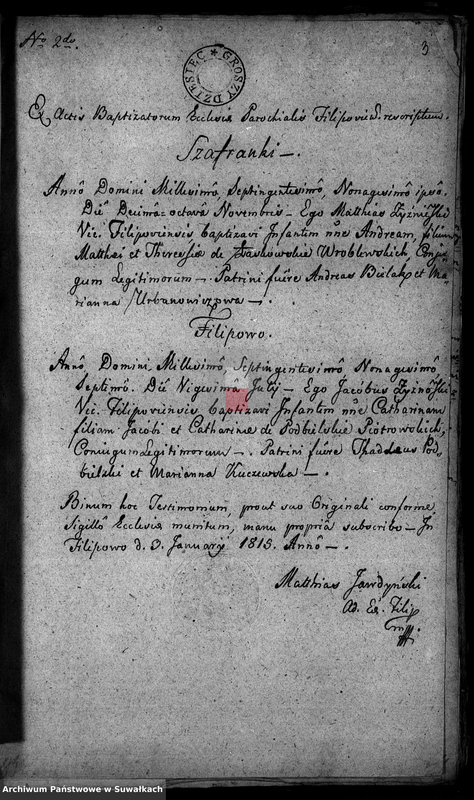 No 2do.
3
GROSZY DZIESIĘĆ
Ex Actis Baptizatorum Ecclesiæ Parochialis Filipoviens. rescriptum.
Szafranki —.
Annô Domini Millesimô, Septingentesimô, Nonagesimô ipsô.
Diê Decima-octavâ Novembris — Ego Matthias
Vic. Filipoviensis baptizavi Infantem nñe Andream, filium
Matthæi et Theresiæ de Wroblewskich, Conju
gum Legitimorum —. Patrini fuêre Andreas Bielak et Ma,
rianna Urbanowiczowa —.
Filipowo.
Annô, Domini Millesimô, Septingentesimô Nonagesimô,
Septimô. Diê Vigesimâ Julÿ — Ego Jacôbus
Vic. Filipoviensis baptizavi Infantem nñe Catharinam
filiam Jacobi et Catharinæ de Podbielskie Piotrowskich,
Coniugum Legitimorum —. Patrini fuêre Thaddæus Pod,
bielski et Marianna Kuczewska —.
Binum hoc Testimonium, prout suo Originali conforme,
Sigillô Ecclesiæ munitum, manu propriâ subscribo — In
Filipowo d. 3. Januarÿ 1815. Annô —.
Matthias Jawdyński
Ad. Ec. Filip
mp.
Archiwum Państwowe w Suwałkach